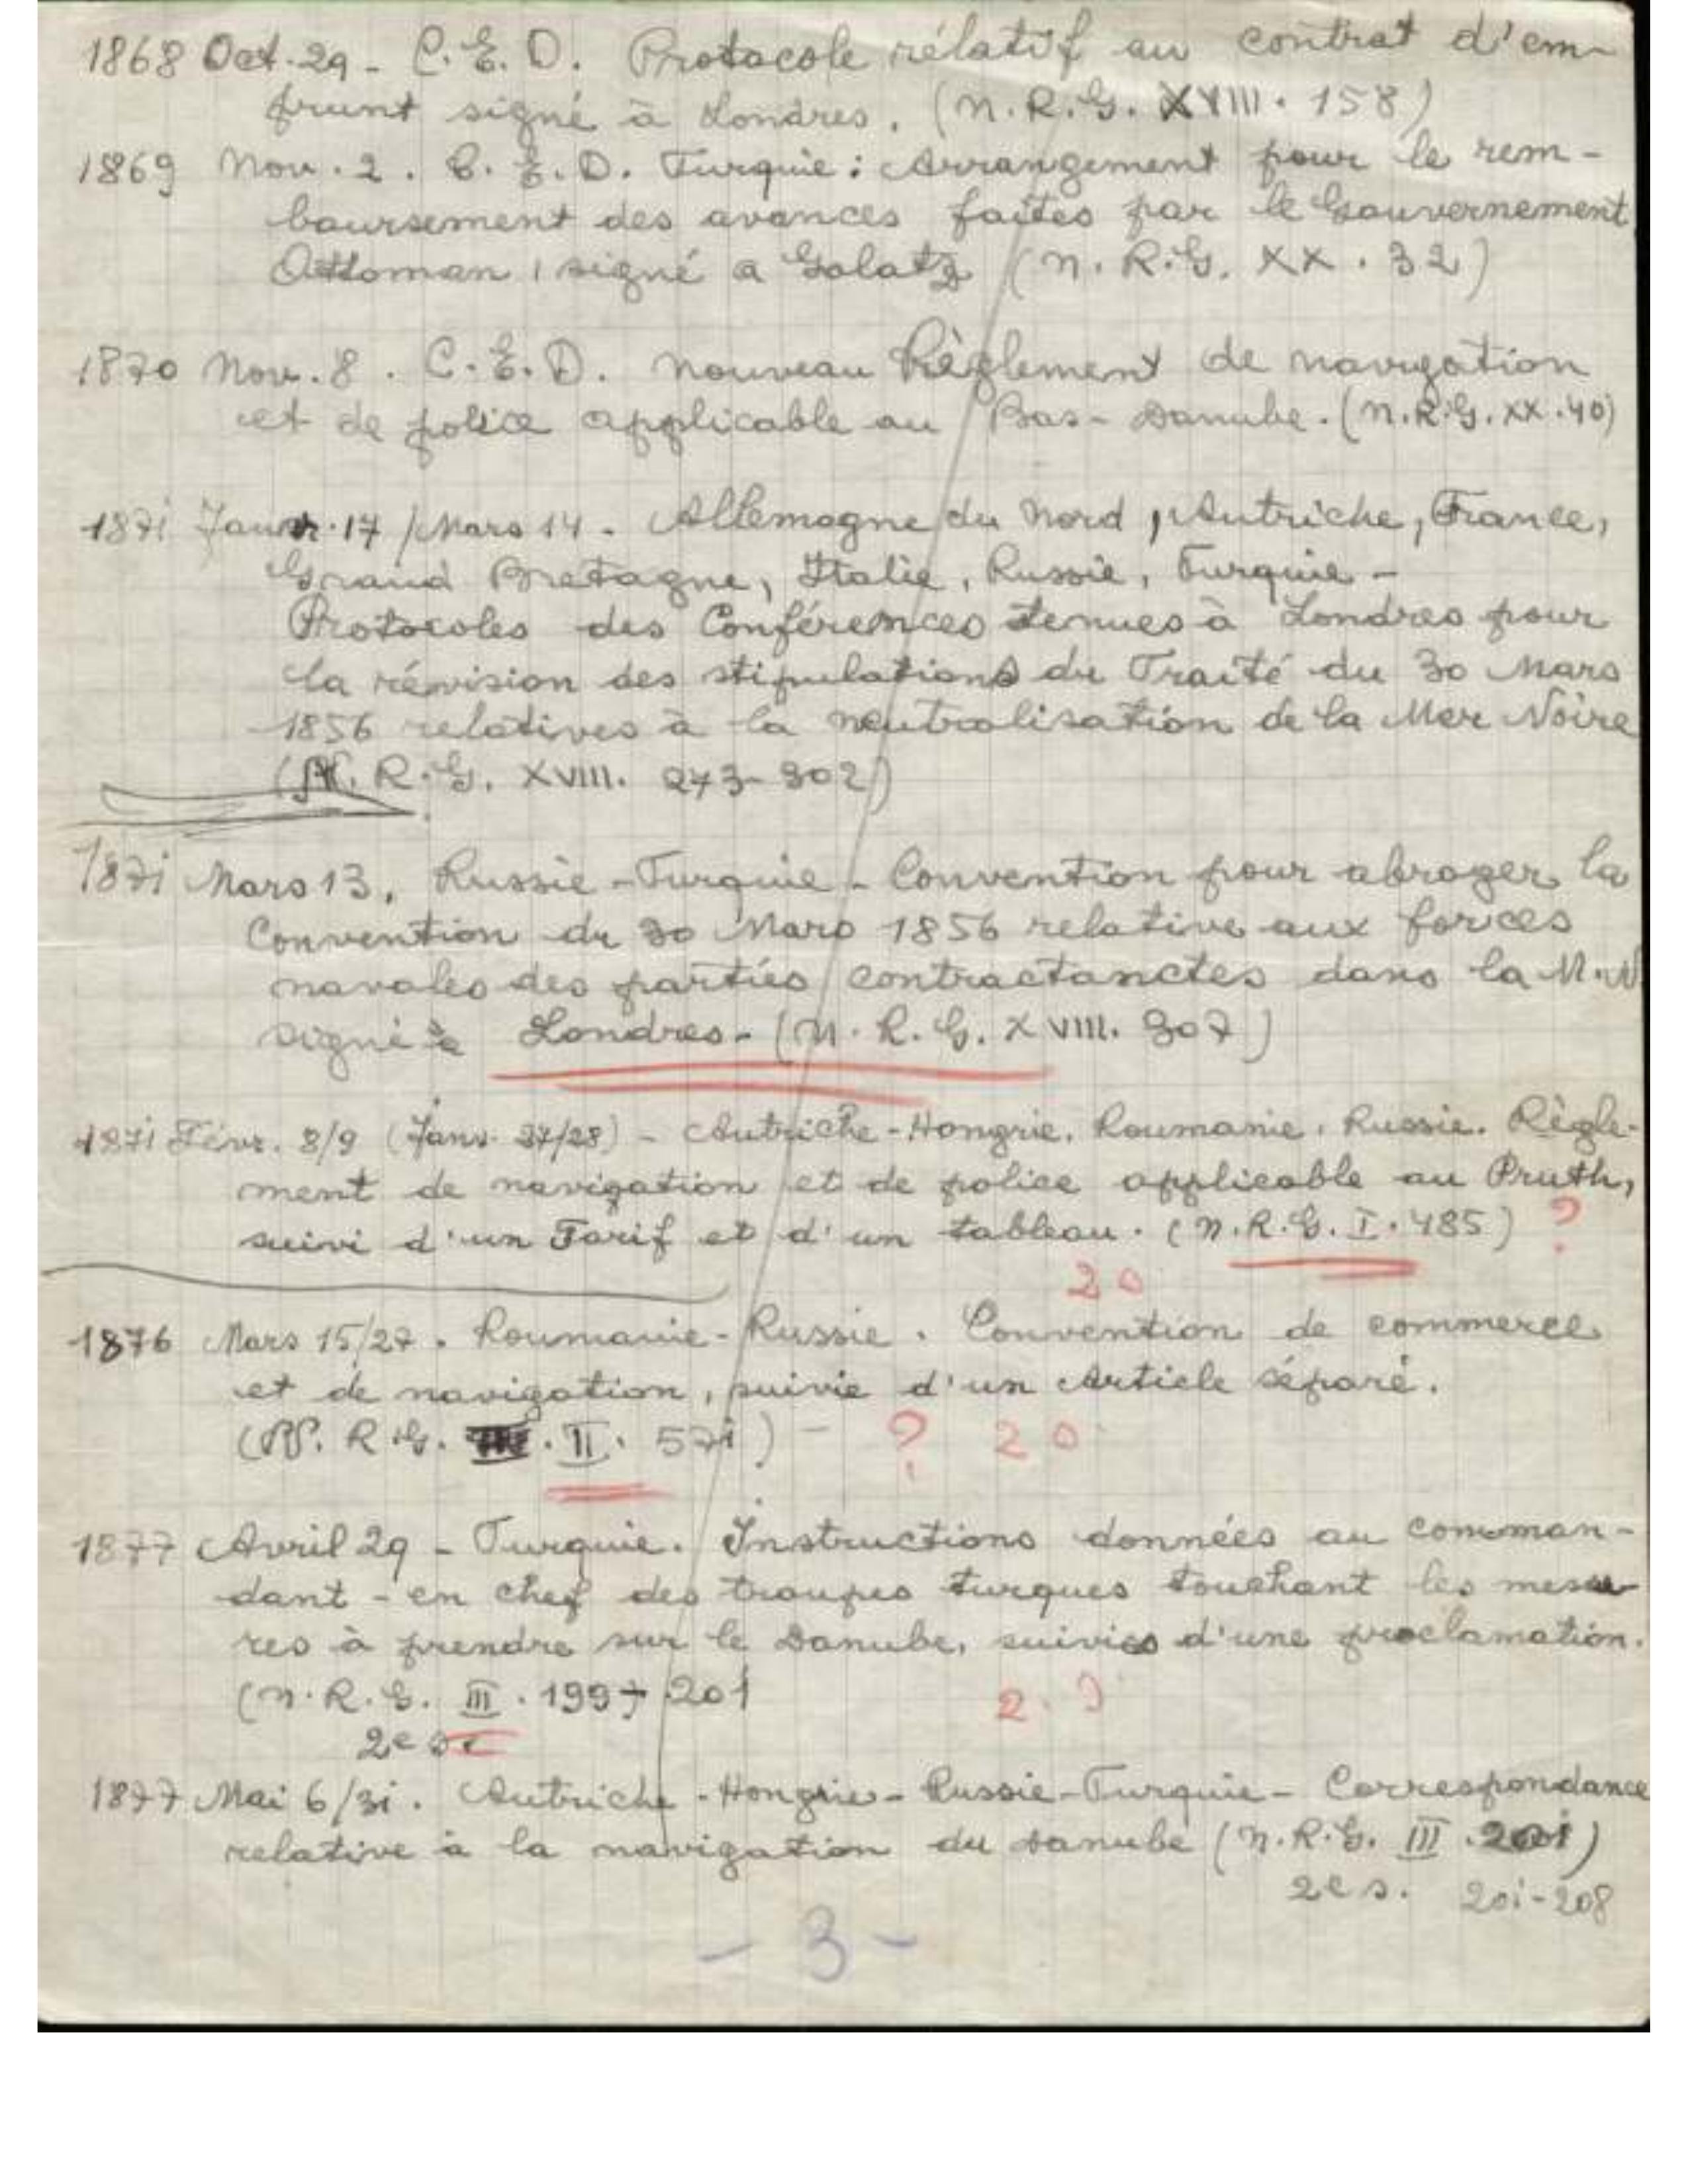 1868 Oct. 29 - C. E. D. Protocole rélatif au contrat d'em-
prunt signé à Londres. (N. R. G. XVIII. 158)
1869 Nov. 2. C. E. D. Turquie: Arrangement pour le rem-
boursement des avances faites par le Gouvernement
Ottoman, signé a Galatz (N. R. G. XX. 32)
1870 Nov. 8. C. E. D. Nouveau Règlement de navigation
et de police applicable au Bas-Danube. (N. R. G. XX. 40)
1871 Janvr. 17 / Mars 14 - Allemagne du Nord, Autriche, France,
Grand Bretagne, Italie, Russie, Turquie -
Protocoles des Conférences tenues à Londres pour
la révision des stipulations du Traité du 30 Mars
1856 relatives à la neutralisation de la Mer Noire
(N. R. G. XVIII. 273-302)
1871 Mars 13. Russie - Turquie - Convention pour abroger la
Convention du 30 Mars 1856 relative aux forces
navales des parties contractanctes dans la M. N.
signé à Londres - (N. R. G. XVIII. 307)
1871 Févr. 8/9 (Janv. 27/28) - Autriche-Hongrie. Roumanie. Russie. Règle-
ment de navigation et de police applicable au Pruth,
suivi d'un Tarif et d'un tableau. (N. R. G. I. 485) ?
20
1876 Mars 15/27. Roumanie-Russie. Convention de commerce
et de navigation, suivie d'un Article séparé.
(N. R. G. II. 571) - ? 20
1877 Avril 29 - Turquie. Instructions données au comman-
dant-en chef des troupes turques touchant les mesu-
res à prendre sur le Danube, suivies d'une proclamation.
(N. R. G. III. 199-201 2.
2e s.
1877 Mai 6/31. Autriche-Hongrie-Russie-Turquie - Correspondance
relative à la navigation du Danube (N. R. G. III. 201)
2e s. 201-208
- 3 -